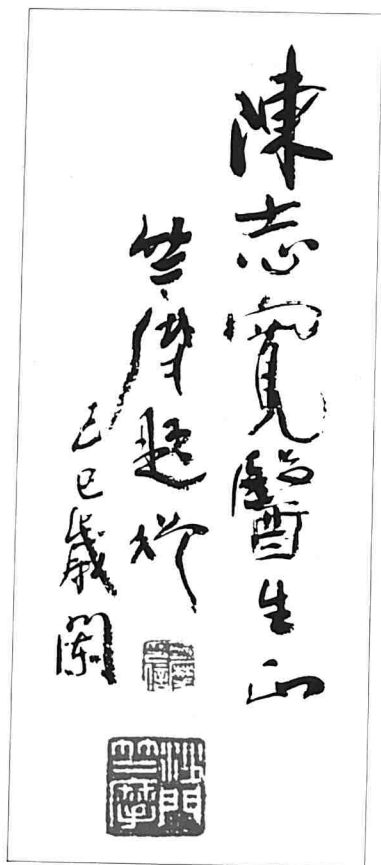 陳志寬醫生正
竺摩題於
己巳歲闌
沙門竺摩